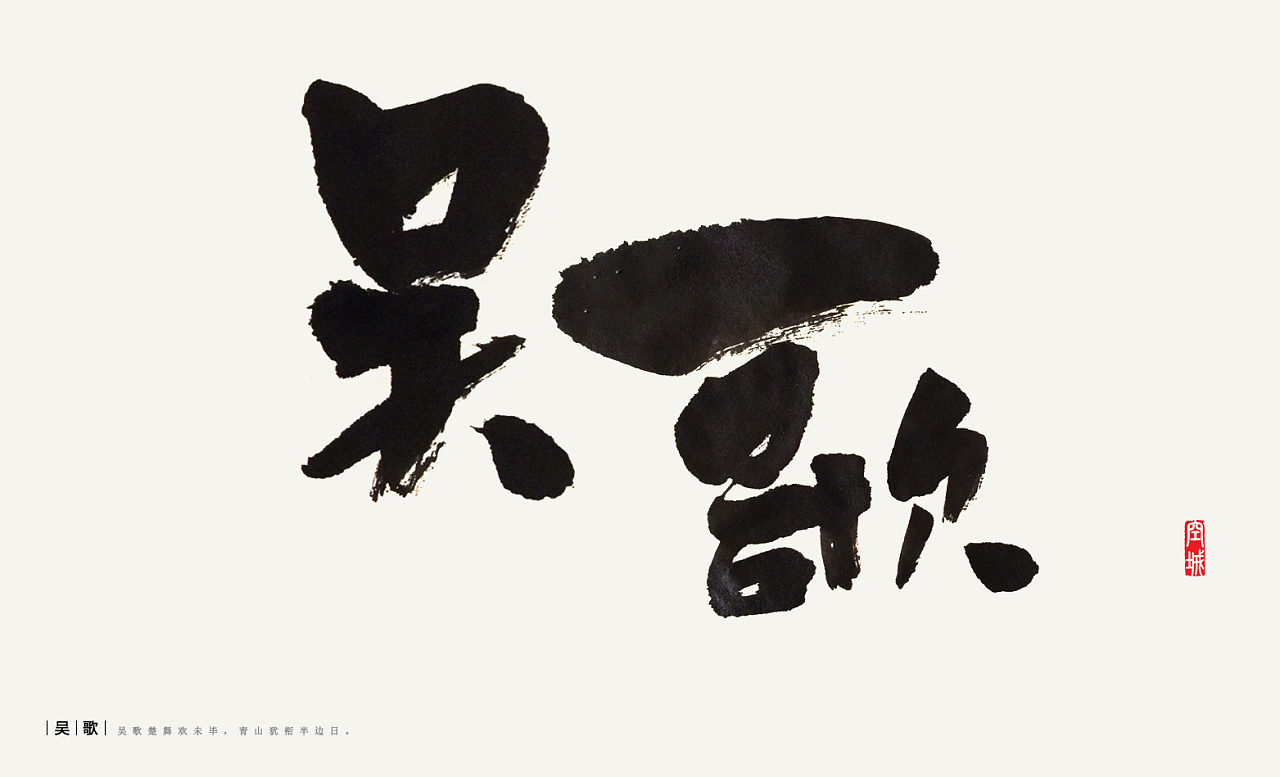 吴歌
空城
吴 歌 吴歌楚舞欢未毕，青山犹衔半边日。